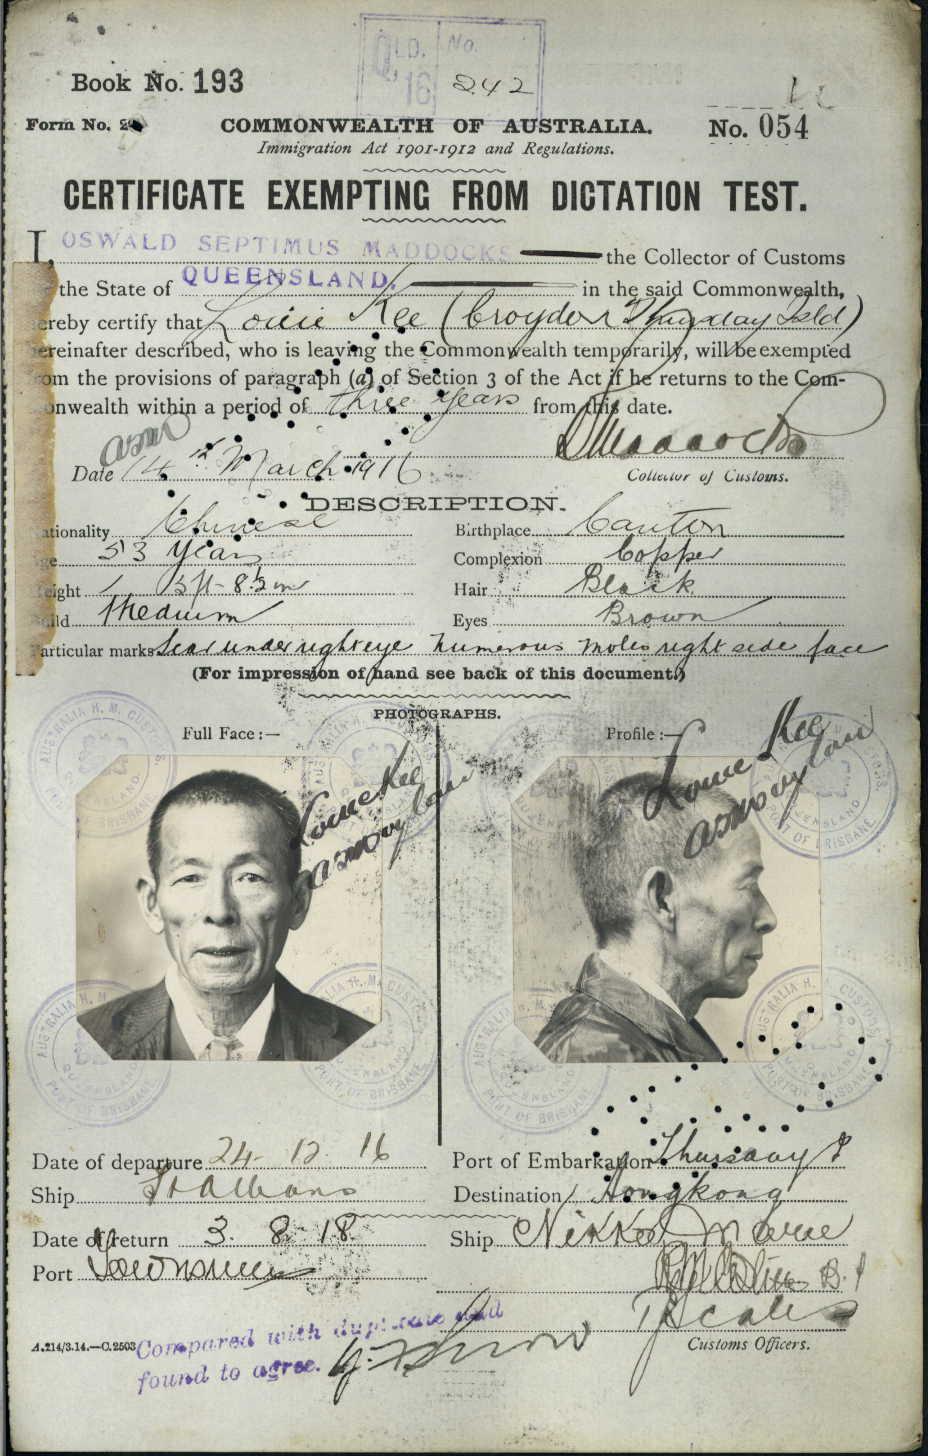 QLD. No.
16 242
Book No. 193
Form No. 2
COMMONWEALTH OF AUSTRALIA. No. 054
Immigration Act 1901-1912 and Regulations.
CERTIFICATE EXEMPTING FROM DICTATION TEST.
I, OSWALD SEPTIMUS MADDOCKS the Collector of Customs
the State of QUEENSLAND. in the said Commonwealth,
ereby certify that Louie Kee (Croydon Thursday Isld)
ereinafter described, who is leaving the Commonwealth temporarily, will be exempted
om the provisions of paragraph (a) of Section 3 of the Act if he returns to the Com-
onwealth within a period of three years from this date.
Date 14th March 1916
Collector of Customs.
DESCRIPTION.
ationality Chinese Birthplace Canton
ge 53 years Complexion Copper
eight 5ft-8½in Hair Black
uild Medium Eyes Brown
articular marks Scar under right eye numerous moles right side face
(For impression of hand see back of this document.)
PHOTOGRAPHS.
Full Face:— Profile:—
Louie Kee Louie Kee
AUSTRALIA H. M. CUSTOMS QUEENSLAND PORT OF BRISBANE
Date of departure 24-12.16 Port of Embarkation Thursday I
Ship St Albans Destination Hongkong
Date of return 3.8.18. Ship Nikko Maru
Port Townsville
Customs Officers.
A.214/3.14.—C.2503
Compared with duplicate and
found to agree.